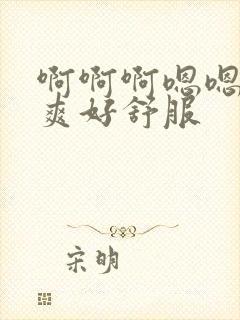 啊啊啊嗯嗯
爽好舒服
宋明